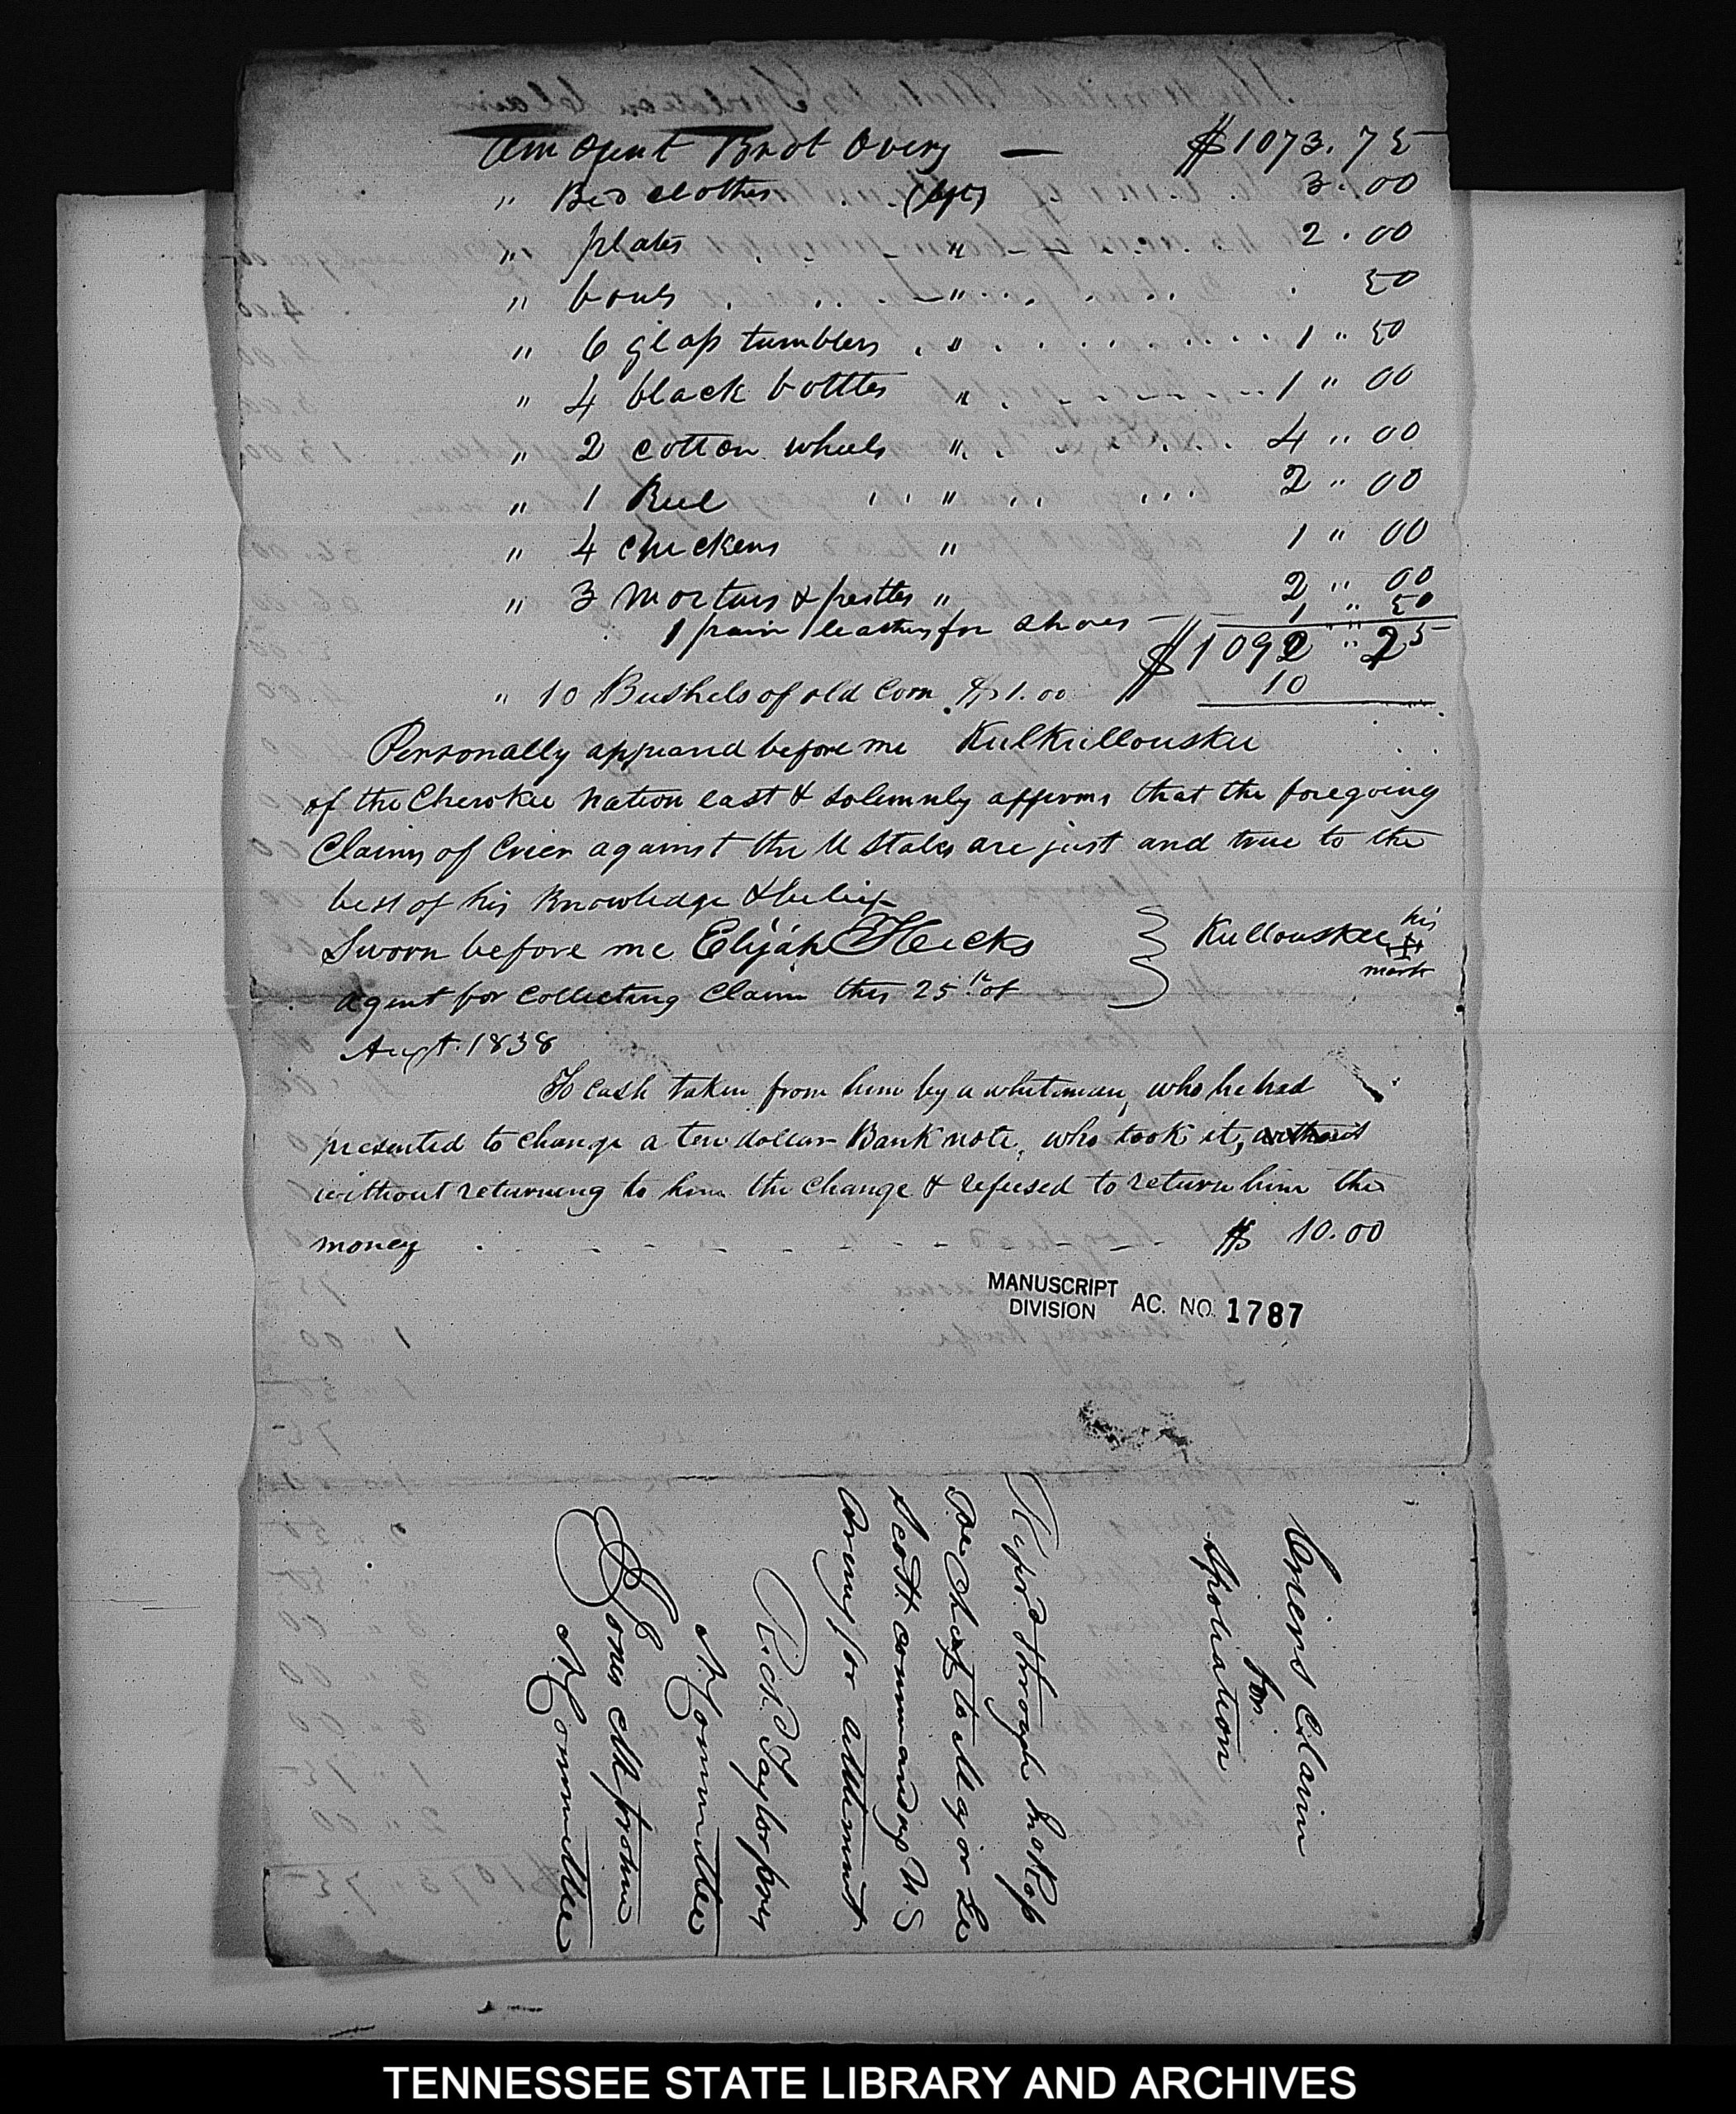 Am Ount Brot Over — $1073.75
" Bed clothes . . (Lost) 3.00
" plates . . - " - - . . . 2.00
" bouls . . . . - " . . . . . . . 50
" 6 glass tumblers . " . . . . . . . . . 1 " 50
" 4 black bottles " . . . . . . 1 " 00
" 2 cotton wheels " . . . . . . 4 " 00
" 1 Reel . . " . . . . . 2 " 00
" 4 chickens " 1 " 00
" 3 Mortars & pestles " 2 " 00
1 pair leathers for shoes — 1 " 50
$1092 " 25
" 10 Bushels of old Corn $1.00 10
Personally appeared before me Kulkullouskee
of the Cherokee Nation east & solemnly affirms that the foregoing
Claims of Crier against the U States are just and true to the
best of his Knowledge & belief
Sworn before me Elijah Hicks
agent for Collecting Claims this 25th of
Augt. 1838
Kullouskee his
X
mark
To cash taken from him by a whiteman, who he had
presented to change a ten dollar Bank note, who took it, without
without returning to him the change & refused to return him the
money . - - - - - - - $ 10.00
MANUSCRIPT
DIVISION AC. NO. 1787
Criers Claim
for
Spoliation
Refrd. through Jno Ross
Pr Chief to Major Ge
Scott commanding U.S
Army for settlement
Rich. Taylor pres
N. Committee
E Jones Clk protem
N. Committee
TENNESSEE STATE LIBRARY AND ARCHIVES